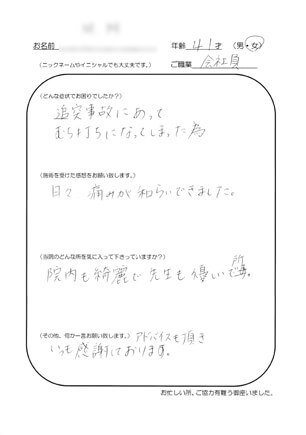 お名前 年齢 41 才 (男・女)
(ニックネームやイニシャルでも大丈夫です。) ご職業 会社員
(どんな症状でお困りでしたか?)
追突事故にあって
むち打ちになってしまった為
(施術を受けた感想をお願い致します。)
日々 痛みが和らいできました。
(当院のどんな所を気に入って下さっていますか?)
院内も綺麗で先生も優しい所。
(その他、何か一言お願い致します。) アドバイスも頂き
いつも感謝しております。
お忙しい所、ご協力有難う御座いました。